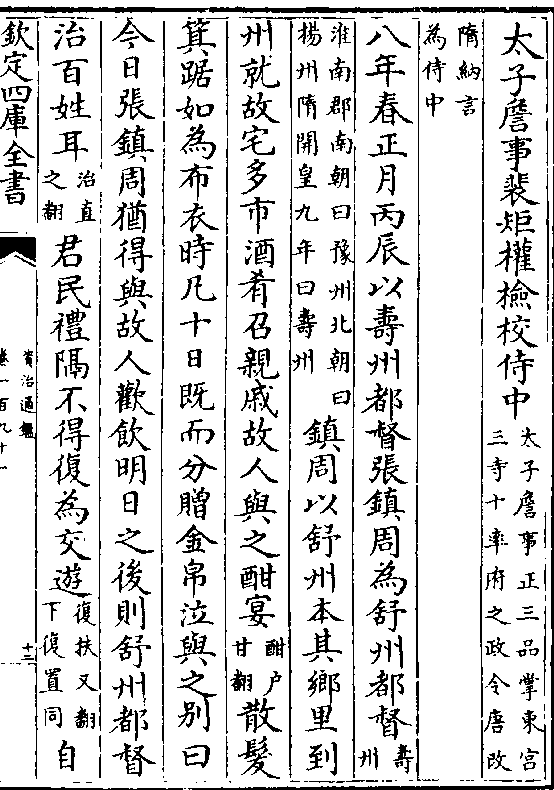 太子詹事裴矩權檢校侍中太子詹事正三品掌東宮三寺十率府之政令唐改
隋納言為侍中
八年春正月丙辰以壽州都督張鎮周為舒州都督壽州
淮南郡南朝曰豫州北朝曰揚州隋開皇九年曰壽州鎮周以舒州本其鄉里到
州就故宅多市酒肴召親戚故人與之酣宴酣户甘翻散髮
箕踞如為布衣時凡十日既而分贈金帛泣與之别曰
今日張鎮周猶得與故人歡飲明日之後則舒州都督
治百姓耳治直之翻君民禮隔不得復為交遊復扶又翻下復置同自
欽定四庫全書
資治通鑑
卷一百九十一
十二